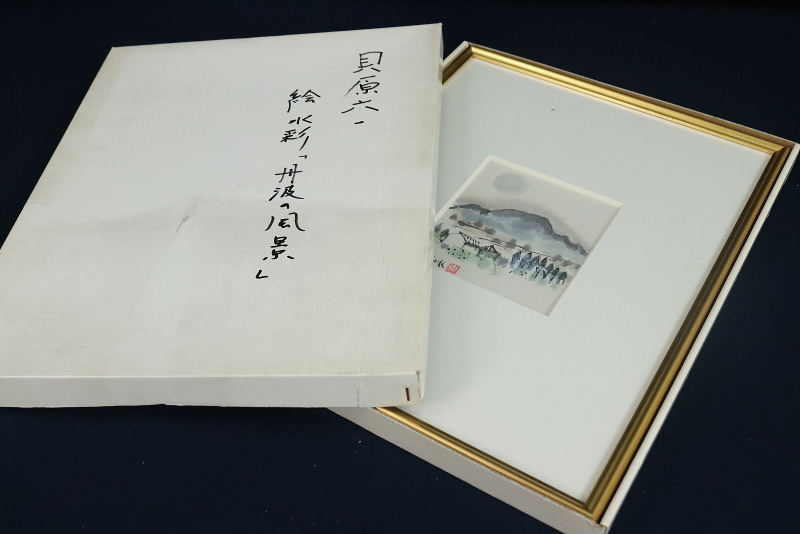 貝原六一
絵水彩「丹波の風景」